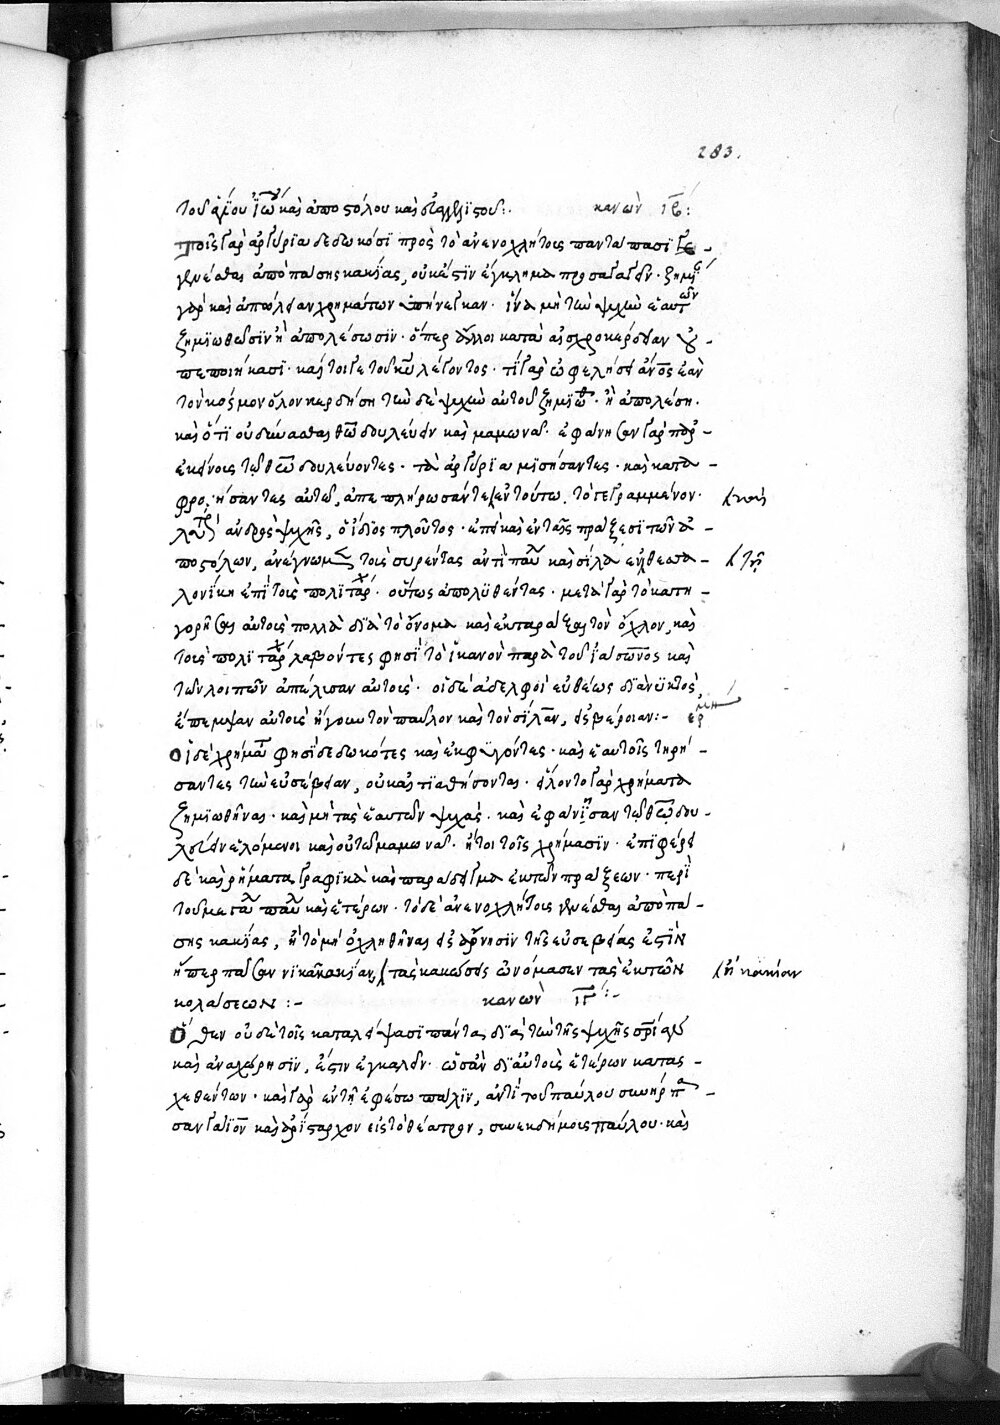 283.
τοῦ ἁγίου ἰω καὶ ἀποστόλου καὶ εὐαγγελιστοῦ:. κανὼν ιβ:
τοῖς γὰρ ἀργύρια δεδωκόσι πρὸς τὸ ἀνενοχλήτοις πάντα πάσι γε-
γενέσθαι ἀπὸ πάσης κακίας, οὐκ ἔστιν ἔγκλημα προσαγαγεῖν. ζημί
γὰρ καὶ ἀπώλειαν χρημάτων ὑπήνεγκαν. ἵνα μὴ τὴν ψυχὴν ἑαυτῶν
ζημιωθῶσιν ἢ ἀπολέσωσιν. ὅπερ ἄλλοι κατὰ αἰσχροκέρδειαν οὐ
πεποιήκασι. καίτοιγε τοῦ κυ λέγοντος. τί γὰρ ὠφελήσει ἄνος ἐὰν
τὸν κόσμον ὅλον κερδήση τὴν δὲ ψυχὴν αὐτοῦ ζημιωθ. ἢ ἀπολέση.
καὶ ὅτι οὐ δύνασθαι θῶ δουλεύειν καὶ μαμωνᾶ. ἐφάνησαν γὰρ παρ-
ἐκείνοις τῶ θῶ δουλεύοντες. τὰ ἀργύρια μισήσαντες. καὶ κατα-
φρονήσαντες αὐτῶν, ἀπεπλήρωσαν τε ἐν τούτω. τὸ γεγραμμένον. καὶ
λυτρ ἀνδρὸς ψυχῆς, ὁ ἴδιος πλοῦτος. ἐπεὶ καὶ ἐν ταῖς πράξεσι τῶν ἀ-
ποστόλων, ἀνέγνωμεν τοὺς συρέντας ἀντὶ παυ καὶ σίλα ἐν θεσσα- τῆ
λονίκη ἐπὶ τοὺς πολιταρχ. οὕτως ἀπολυθέντας. μετὰ γὰρ τὸ κατη-
γορῆσαι αὐτοὺς πολλὰ διὰ τὸ ὄνομα καὶ ἐκταράξαι τὸν ὄχλον, καὶ
τοὺς πολιταρχ λαβόντες φησὶ τὸ ἱκανὸν παρὰ τοῦ ἰάσωνος καὶ
τῶν λοιπῶν ἀπέλυσαν αὐτούς. οἱ δὲ ἀδελφοὶ εὐθέως διὰ νυκτὸς
ἔπεμψαν αὐτοὺς ἤγουν τὸν παῦλον καὶ τὸν σίλαν, εἰς βέροιαν:- ἑρμη
Οἱ δὲ χρήμα φησὶ δεδωκότες καὶ ἐκφυγόντες. καὶ ἑαυτοῖς τηρή-
σαντες τὴν εὐσέβειαν, οὐκ αἰτιαθήσονται. εἵλοντο γὰρ χρήματα
ζημιωθῆναι. καὶ μὴ τὰς ἑαυτῶν ψυχάς. καὶ ἐφάνησαν τῶ θῶ δου-
λεύειν ἑλόμενοι καὶ οὐ τῶ μαμωνᾶ. ἤτοι τοῖς χρήμασιν. ἐπιφέρει
δὲ καὶ ῥήματα γραφικὰ καὶ παράδειγμα ἐκ τῶν πράξεων. περὶ
τοῦ μεγάλ παυλ καὶ ἑτέρων. τὸ δὲ ἀνενοχλήτοις γενέσθαι ἀπὸ πά-
σης κακίας, ἢ τὸ μὴ ὀχληθῆναι εἰς ἄρνησιν τῆς εὐσεβείας ἐστὶν
ἥπερ πᾶσαν νικᾶ κακίαν, τὰς κακώσεις ὠνόμασεν τὰς ἐκ τῶν ἢ κακίαν
κολάσεων:- κανὼν ιγ:-
Ὅθεν οὐδὲ τοῖς καταλείψασι πάντα διὰ τὴν τῆς ψυχῆς σρίαν
καὶ ἀναχώρησιν, ἔστιν ἐγκαλεῖν. ὡσὰν δι αὐτοὺς ἑτέρων κατασ-
χεθέντων. καὶ γὰρ ἐν τῆ ἐφέσω πάλιν, ἀντὶ τοῦ παύλου συνήρπα-
σαν γάϊον καὶ ἀρίσταρχον εἰς τὸ θέατρον, συνεκδήμους παύλου. καὶ